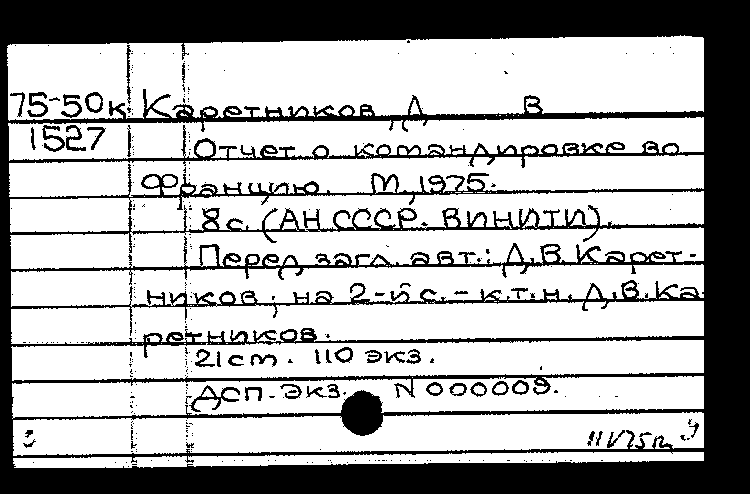 75-50к Каретников, Д В
1527
Отчет о командировке во
Францию. М, 1975.
8 с. (АН СССР. ВИНИТИ).
Перед загл. авт.: Д.В. Карет-
ников; на 2-й с. - к.т.н. Д.В. Ка-
ретников.
21 cm. 110 экз.
ДСП. Экз. N 000009.